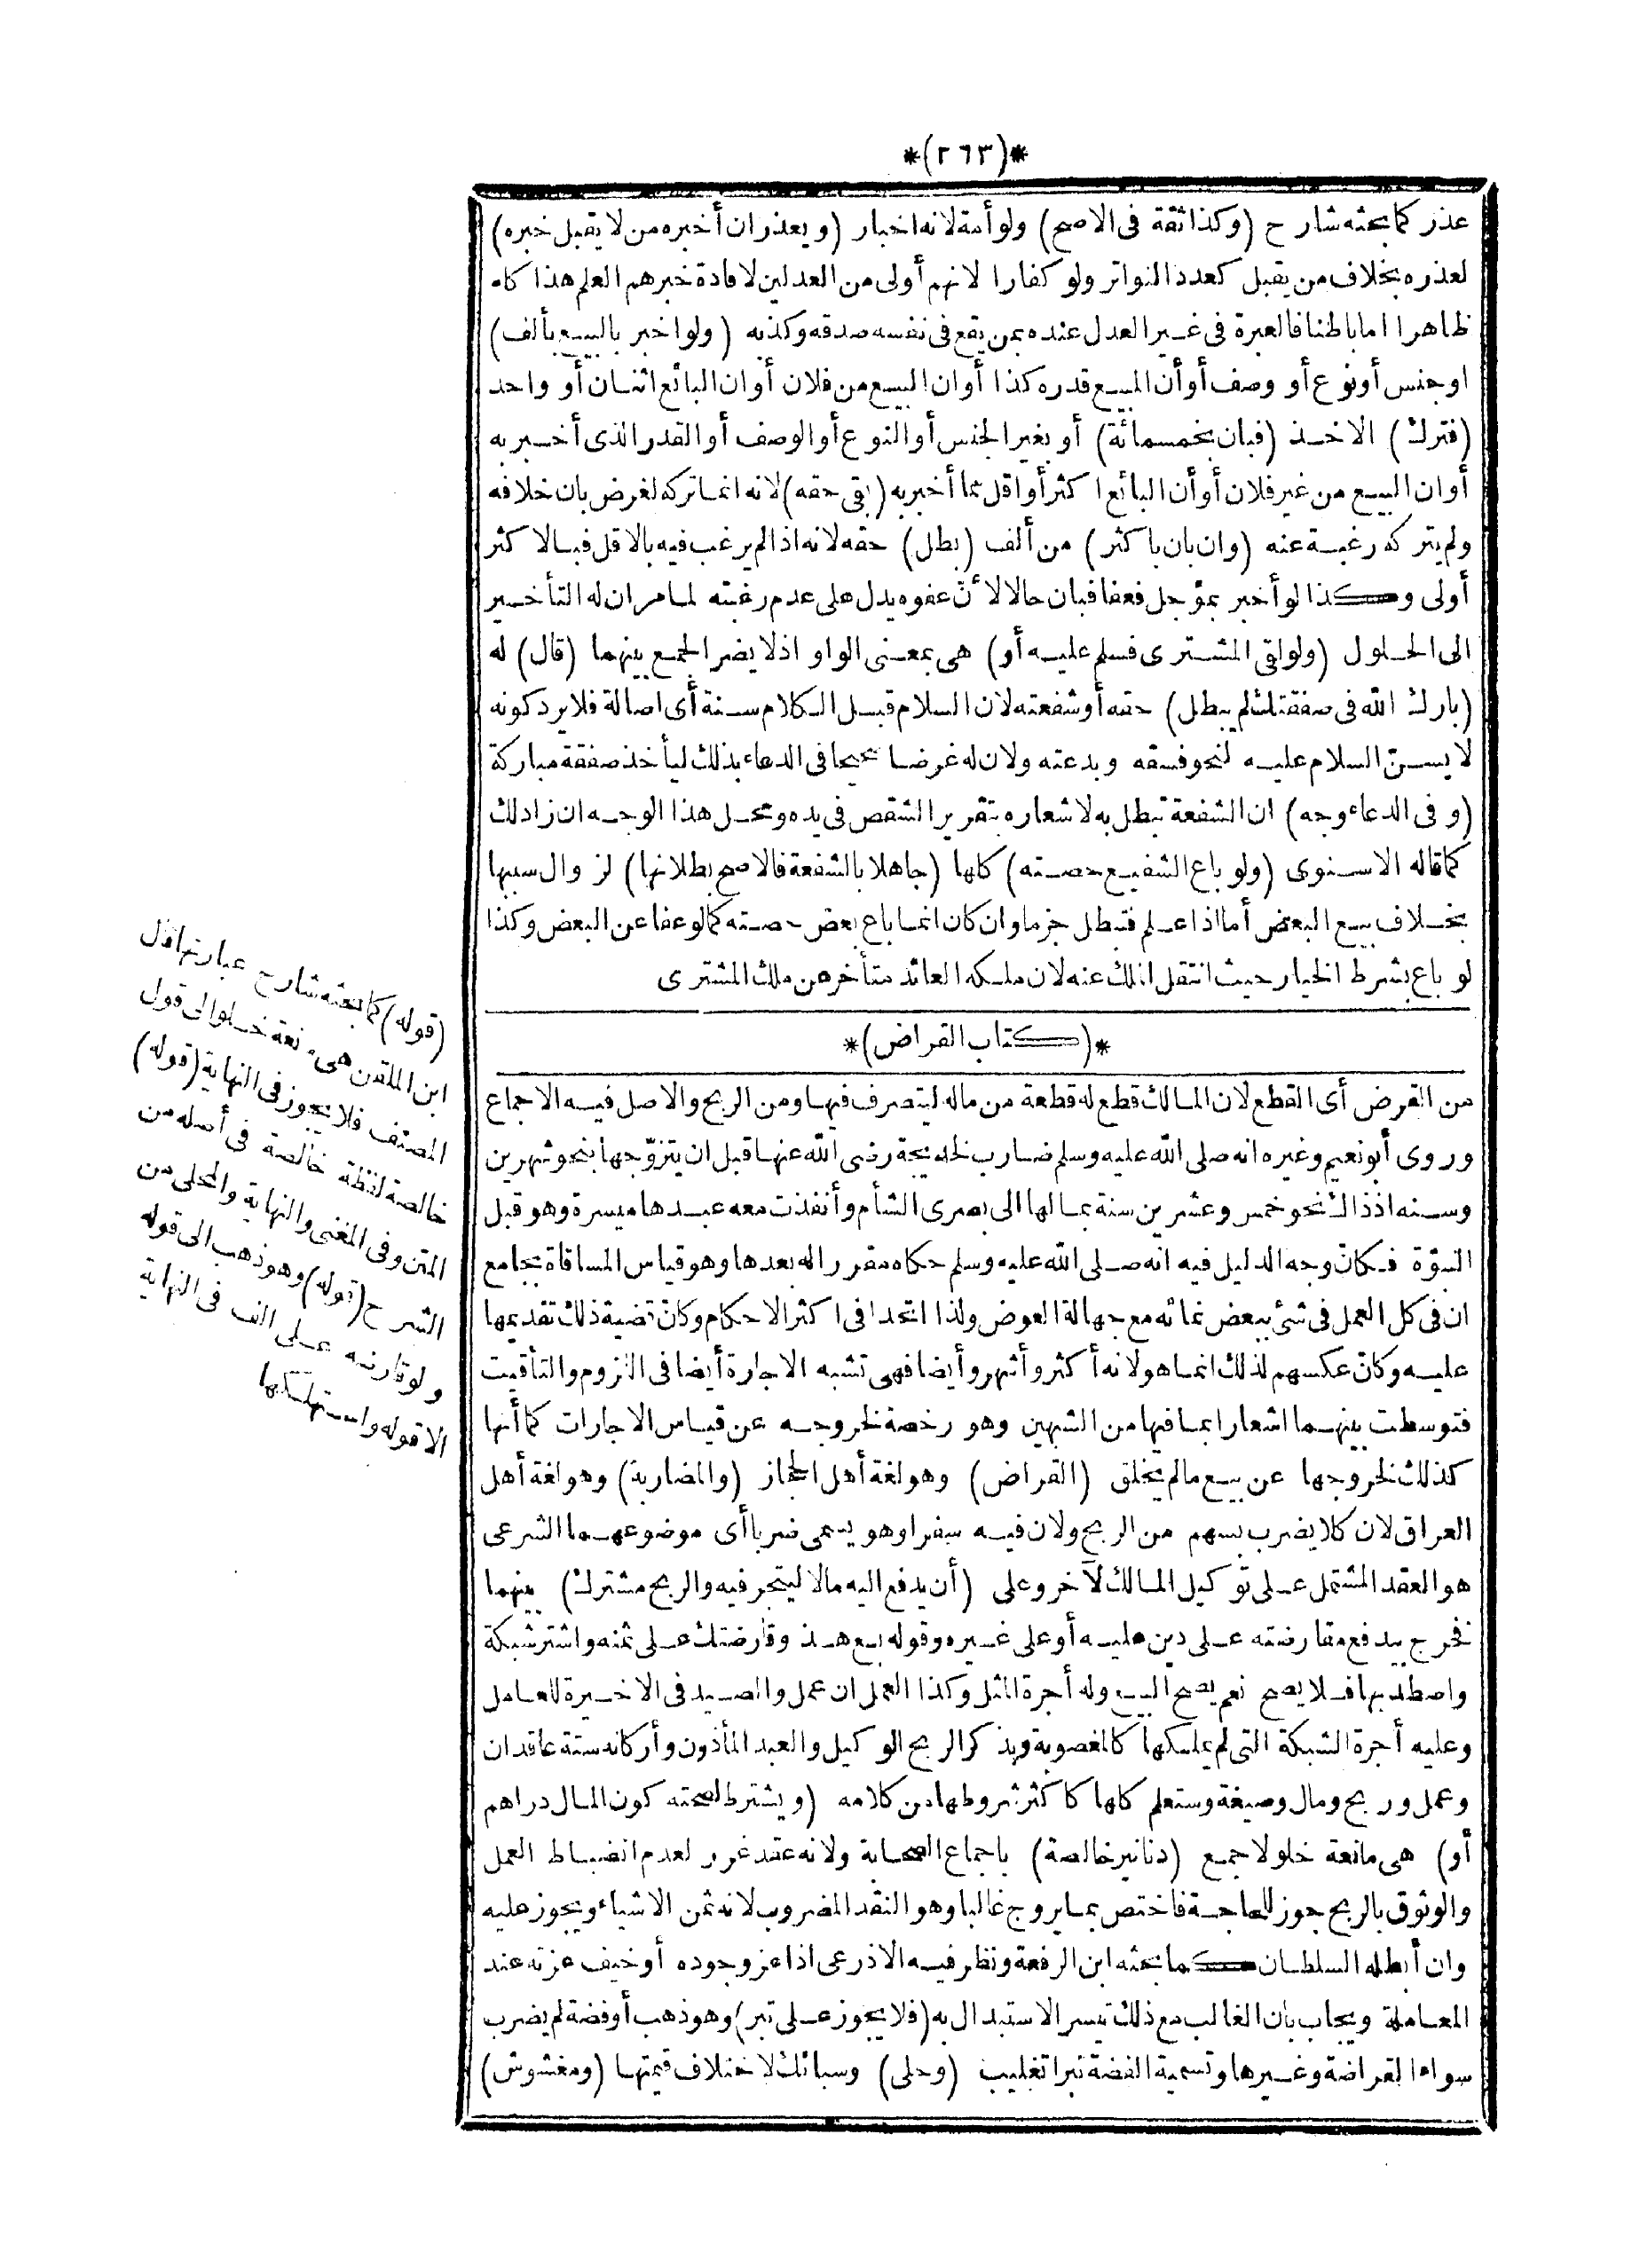 *(٢٦٣)*
عذر كما بحثه شارح (وكذا ثقة فى الاصح) ولو أمة لانه اخبار (ويعذر ان أخبره من لا يقبل خبره)
لعذره بخلاف من يقبل كعدد التواتر ولو كفارا لانهم أولى من العدلين لافادة خبرهم العلم هذا كله
ظاهرا اما باطنا فالعبرة فى غير العدل عنده بمن يقع فى نفسه صدقه وكذبه (ولو اخبر بالبيع بألف)
او جنس أو نوع أو وصف أو أن المبيع قدره كذا أو ان البيع من فلان أو ان البائع اثنان أو واحد
(فترك) الاخذ (فبان بخمسمائة) أو بغير الجنس أو النوع أو الوصف أو القدر الذى أخبر به
أو ان البيع من غير فلان أو أن البائع اكثر أو اقل مما أخبر به (بقى حقه) لانه انما تركه لغرض بان خلافه
ولم يتركه رغبة عنه (وان بان با كثر) من ألف (بطل) حقه لانه اذا لم يرغب فيه بالاقل فبالاكثر
أولى وكذا لو أخبر بمؤجل فعفا فبان حالا لأنّ عفوه يدل على عدم رغبته لما مر ان له التأخير
الى الحلول (ولو لقى المشترى فسلم عليه أو) هى بمعنى الواو اذ لا يضر الجمع بينهما (قال) له
(بارك الله فى صفقتك لم يبطل) حقه أو شفعته لان السلام قبل الكلام سنة أى اصالة فلا يرد كونه
لا يسنّ السلام عليه لنحو فسقه وبدعته ولان له غرضا صحيحا فى الدعاء بذلك ليأخذ صفقة مباركة
(وفى الدعاء وجه) ان الشفعة تبطل به لاشعاره بتقرير الشقص فى يده ومحل هذا الوجه ان زاد لك
كما قاله الاسنوى (ولو باع الشفيع حصته) كلها (جاهلا بالشفعة فالاصح بطلانها) لزوال سببها
بخلاف بيع البعض أما اذا علم فتبطل جزما وان كان انما باع بعض حصته كما لو عفا عن البعض وكذا
لو باع بشرط الخيار حيث انتقل الملك عنه لان ملكه العائد متأخر عن ملك المشترى
*(كتاب القراض)*
من القرض أى القطع لان المالك قطع له قطعة من ماله ليتصرف فيها ومن الربح والاصل فيه الاجماع
وروى أبو نعيم وغيره انه صلى الله عليه وسلم ضارب لخديجة رضى الله عنها قبل ان يتزوّجها بنحو شهرين
وسنه اذ ذاك نحو خمس وعشرين سنة بمالها الى بصرى الشأم وأنفذت معه عبدها ميسرة وهو قبل
النبوّة فكانّ وجه الدليل فيه انه صلى الله عليه وسلم حكاه مقررا له بعدها وهو قياس المساقاة بجامع
ان فى كل العمل فى شئ ببعض نمائه مع جهالة العوض ولذا اتحدا فى اكثر الاحكام وكانّ قضية ذلك تقديمها
عليه وكانّ عكسهم لذلك انما هو لانه أكثر وأشهر وأيضا فهى تشبه الاجارة أيضا فى اللزوم والتأقيت
فتوسطت بينهما اشعارا بما فيها من الشبهين وهو رخصة لخروجه عن قياس الاجارات كما أنها
كذلك لخروجها عن بيع ما لم يخلق (القراض) وهو لغة أهل الحجاز (والمضاربة) وهو لغة أهل
العراق لان كلا يضرب بسهم من الربح ولان فيه سفرا وهو يسمى ضربا أى موضوعهما الشرعى
هو العقد المشتمل على توكيل المالك لآخر وعلى (أن يدفع اليه مالا ليتجر فيه والربح مشترك) بينهما
فخرج بيدفع مقارضته على دين عليه أو على غيره وقوله بع هذا وقارضتك على ثمنه واشتر شبكة
واصطد بها فلا يصح نعم يصح البيع وله أجرة المثل وكذا العمل ان عمل والصيد فى الاخيرة للعامل
وعليه أجرة الشبكة التى لم يملكها كالمغصوبة وبذكر الربح الوكيل والعبد المأذون وأركانه ستة عاقدان
وعمل وربح ومال وصيغة وستعلم كلها كاكثر شروطها من كلامه (ويشترط لصحته كون المال دراهم
أو) هى مانعة خلو لا جمع (دنانير خالصة) باجماع الصحابة ولانه عقد غرر لعدم انضباط العمل
والوثوق بالربح جوز للحاجة فاختص بما يروج غالبا وهو النقد المضروب لانه ثمن الاشياء ويجوز عليه
وان أبطله السلطان كما بحثه ابن الرفعة ونظر فيه الاذرعى اذا عز وجوده أو خيف عزته عند
المعاملة ويجاب بان الغالب مع ذلك تيسر الاستبدال به (فلا يجوز على تبر) وهو ذهب أو فضة لم يضرب
سواء القراضة وغيرها وتسمية الفضة تبرا تغليب (وحلى) وسبائك لاختلاف قيمتها (ومغشوش)
(قوله) كما بحثه شارح عبارتها قال
ابن الملقن هى مانعة خلو الى قول
المصنف فلا يجوز فى النهاية (قوله)
خالصة لفظة خالصة فى أصله من
المتن وفى المغنى والنهاية والمحلى من
الشرح (قوله) وهو ذهب الى قوله
ولو قارضه على الف فى النهاية
الا قوله واستهلكها